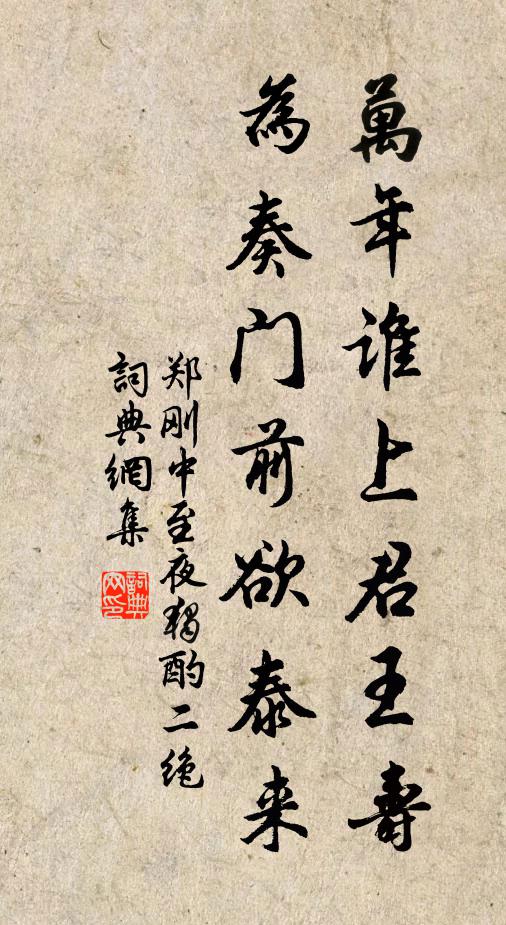 萬年誰上君王壽
為奏門前欲泰来
郑刚中至夜獨酌二绝
詞典網集
詞典
网印